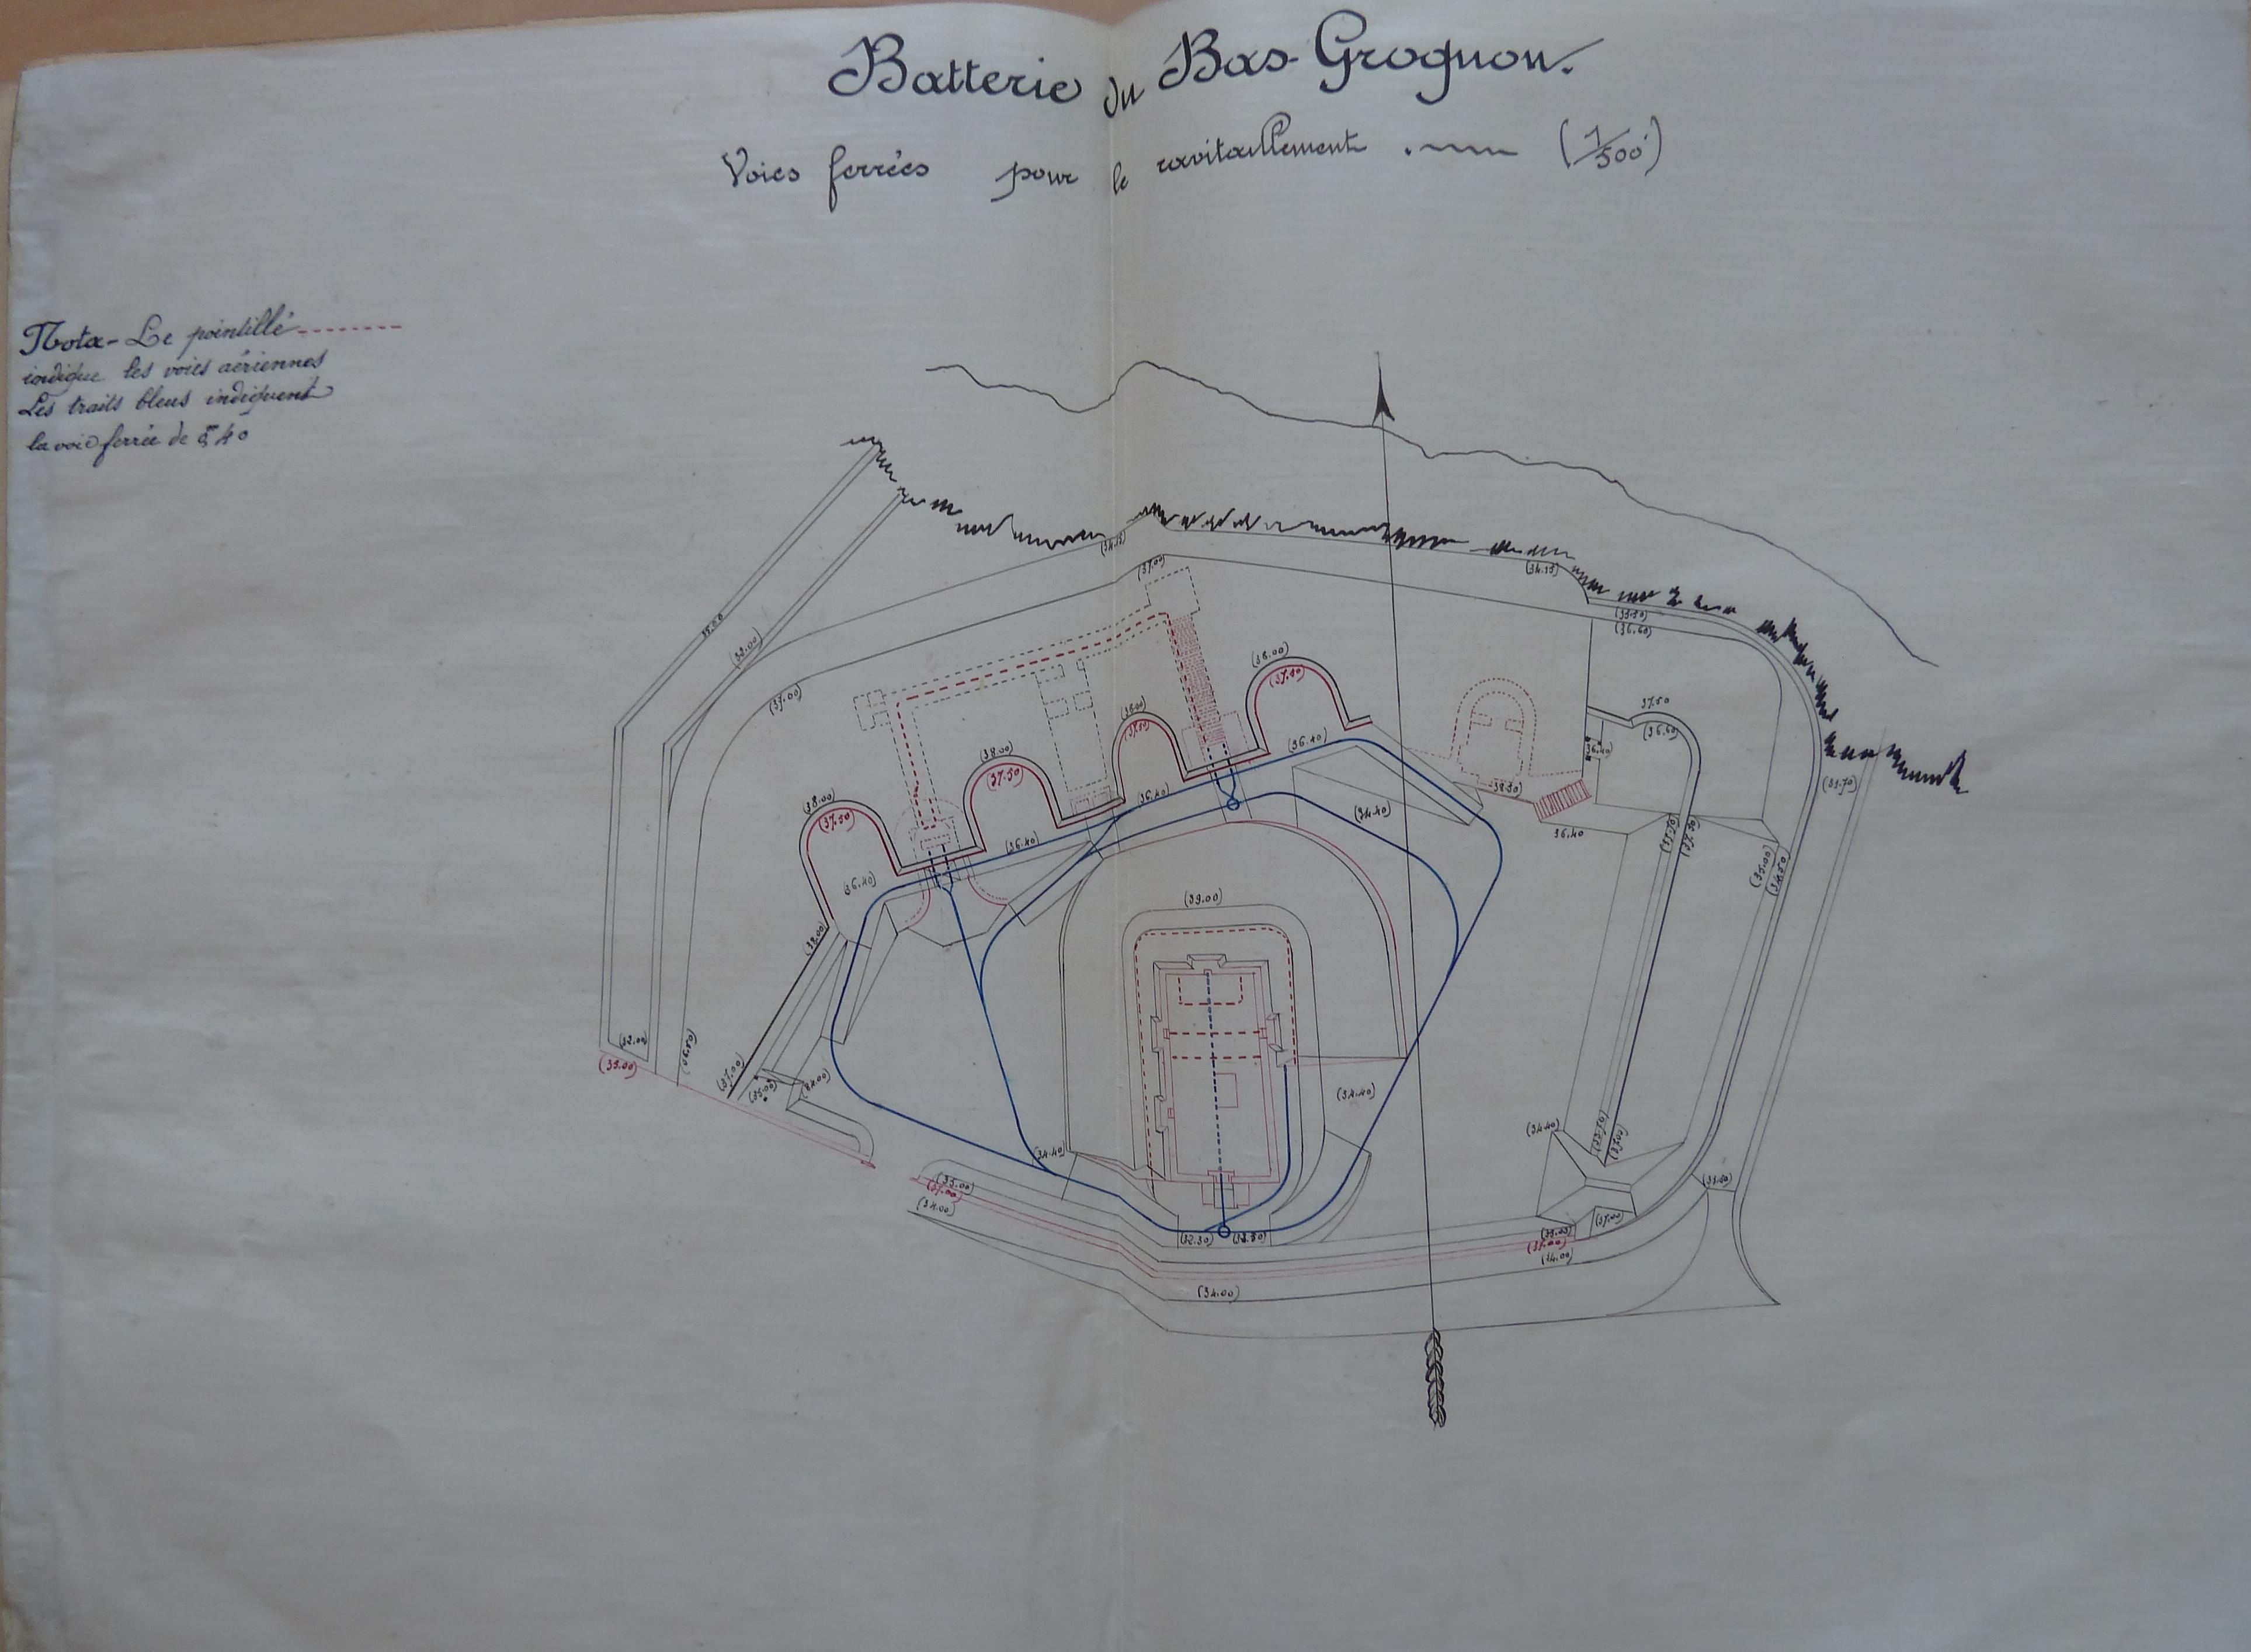 Batterie du Bas-Grognon.
Voies ferrées pour le ravitaillement. (1/500)
Nota - Le pointillé
indique les voies aériennes
Les traits bleus indiquent
la voie ferrée de 0m40
(34.55)
(37.00)
(34.55)
(35.50)
(36.60)
35.00
(38.00)
(37.00)
(38.00)
(37.50)
37.50
(36.60)
(38.00)
(37.50)
(36.40)
(36.40)
(38.00)
(37.50)
(36.40)
38.50
(35.70)
(38.00)
(37.50)
(36.40)
(34.40)
36.40
(36.40)
(36.40)
(35.00)
(34.50)
(39.00)
(38.00)
(32.00)
(35.00)
(36.50)
(37.00)
(35.00)
(34.00)
(34.40)
(34.40)
(34.40)
(35.00)
(37.00)
(34.00)
(32.50)
(32.50)
(37.00)
(35.00)
(37.00)
(34.00)
(34.00)